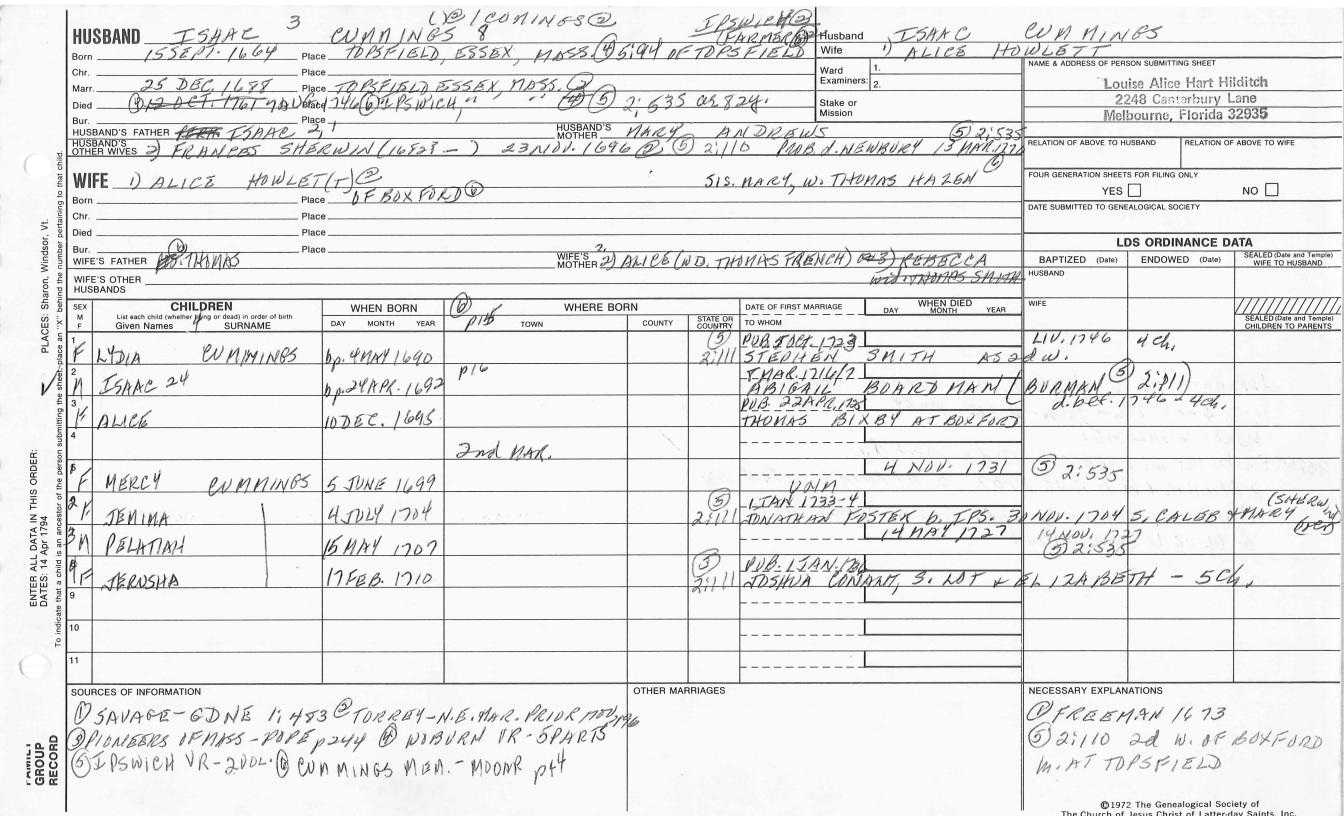 3 (1)② / COMINGS② IPSWICH②
HUSBAND ISAAC CUMMINGS 8 FARMER⑥ Husband ISAAC CUMMINGS
Born 15 SEPT. 1664 Place TOPSFIELD, ESSEX, MASS. ④ 5:94 OF TOPSFIELD Wife 1) ALICE HOWLETT
Chr. Place
Marr. 25 DEC. 1688 Place TOPSFIELD, ESSEX, MASS. ②
Died ① 12 OCT. 1767 Place 1746 ⑥ IPSWICH, " " ④ ⑤ 2:635 as 82y.
Bur. Place
Ward Examiners: 1. 2.
Stake or Mission
NAME & ADDRESS OF PERSON SUBMITTING SHEET
Louise Alice Hart Hilditch
2248 Canterbury Lane
Melbourne, Florida 32935
HUSBAND'S FATHER ISAAC 2, 1 HUSBAND'S MOTHER MARY ANDREWS ⑤ 2:535
HUSBAND'S OTHER WIVES 2) FRANCES SHERWIN ( – ) 23 NOV. 1696 ② ⑤ 2:110 PROB d. NEWBURY 13 MAR.
RELATION OF ABOVE TO HUSBAND RELATION OF ABOVE TO WIFE
WIFE 1) ALICE HOWLET(T) ② SIS. MARY, W. THOMAS HAZEN ⑥
Born Place OF BOXFORD ⑥
Chr. Place
Died Place
Bur. Place
FOUR GENERATION SHEETS FOR FILING ONLY
YES NO
DATE SUBMITTED TO GENEALOGICAL SOCIETY
WIFE'S FATHER THOMAS WIFE'S MOTHER 2) ALICE (WD. THOMAS FRENCH) 3) REBECCA
WIFE'S OTHER HUSBANDS wid. THOMAS SMITH
LDS ORDINANCE DATA
BAPTIZED (Date) ENDOWED (Date) SEALED (Date and Temple) WIFE TO HUSBAND
HUSBAND
WIFE
SEALED (Date and Temple) CHILDREN TO PARENTS
SEX M F CHILDREN WHEN BORN WHERE BORN DATE OF FIRST MARRIAGE WHEN DIED
List each child (whether living or dead) in order of birth
Given Names 4 SURNAME DAY MONTH YEAR TOWN COUNTY STATE OR COUNTRY TO WHOM DAY MONTH YEAR
⑥ p115
1 F LYDIA CUMMINGS bp. 4 MAY 1690 ⑤ 2:111 PUB. 5 OCT. 1723 STEPHEN SMITH AS 2d W. LIV. 1746 4 ch.
2 M ISAAC 24 bp. 24 APR. 1692 p16 7 MAR. 1716/7 ABIGAIL BOARDMAN (BURMAN ⑤ 2:p11)
3 F ALICE 10 DEC. 1695 PUB. 22 APR. THOMAS BIXBY AT BOXFORD d. bef. 1746 - 4 ch.
4 2nd MAR.
1 F MERCY CUMMINGS 5 JUNE 1699 UNM 4 NOV. 1731 ⑤ 2:535
2 F JEMIMA 4 JULY 1704 ⑤ 2:111 1 JAN. 1733-4 JONATHAN FOSTER b. IPS. 30 NOV. 1704 S. CALEB & MARY (SHERWIN)
3 M PELATIAH 15 MAY 1707 14 MAY 1727 14 NOV. 1727 ⑤ 2:535
4 F JERUSHA 17 FEB. 1710 ⑤ 2:111 PUB. 1 JAN. JOSHUA CONANT, S. LOT & ELIZABETH - 5 Ch.
9
10
11
SOURCES OF INFORMATION OTHER MARRIAGES NECESSARY EXPLANATIONS
① SAVAGE-GDNE 1:483 ② TORREY-N.E. MAR. PRIOR
③ PIONEERS OF MASS - POPE p244 ④ WOBURN VR - 5 PARTS
⑤ IPSWICH VR - 2 VOL. ⑥ CUMMINGS MEM. - MOONR pt4
① FREEMAN 1673
⑤ 2:110 2d W. OF BOXFORD
m. AT TOPSFIELD
PLACES: Sharon, Windsor, Vt.
ENTER ALL DATA IN THIS ORDER:
DATES: 14 Apr 1794
To indicate that a child is an ancestor of the person submitting the sheet, place an "X" behind the number pertaining to that child.
FAMILY GROUP RECORD
©1972 The Genealogical Society of
The Church of Jesus Christ of Latter-day Saints, Inc.